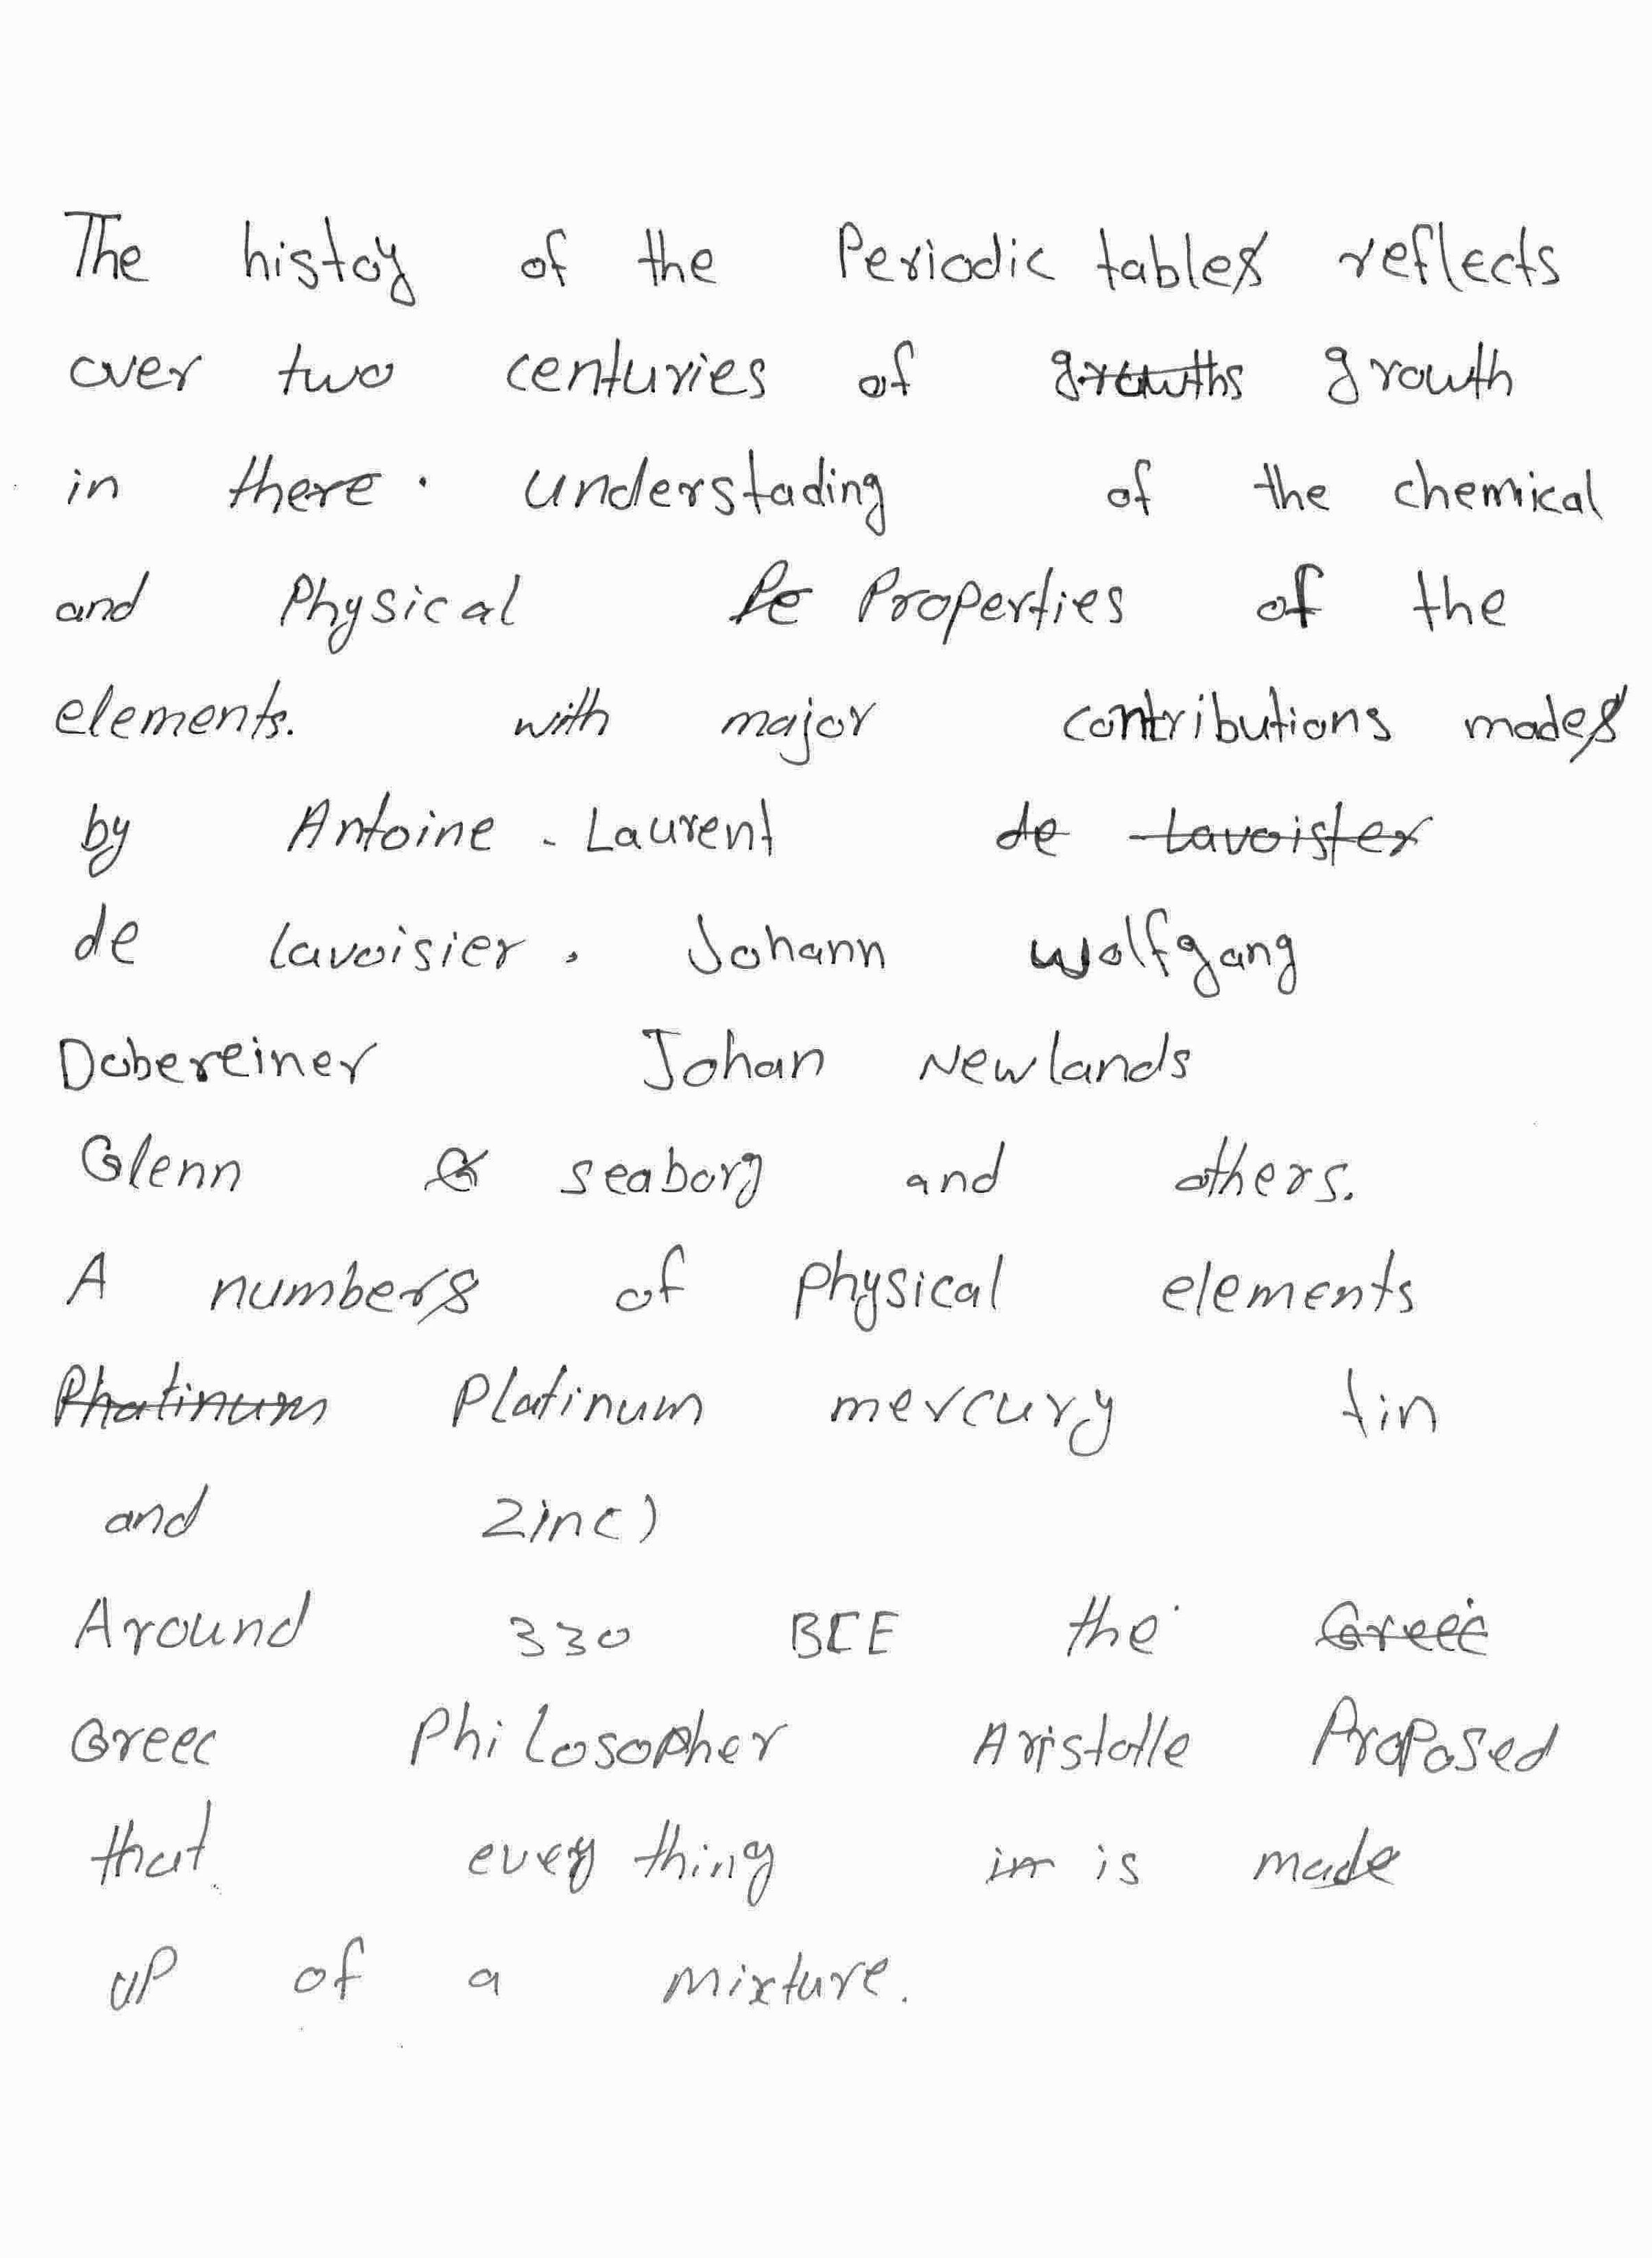 The histoy of the Periodic tables reflects
over two centuries of growths growth
in there. understading of the chemical
and Physical Pe Properties of the
elements. with major contributions mades
by Antoine - Laurent de Lavoister
de lavoisier. Johann wolfgang
Dobereiner Johan Newlands
Glenn G seaborg and others.
A numbers of physical elements
Phatinum Platinum mercury tin
and Zinc)
Around 330 BCE the Greec
Greec Philosopher Aristotle Proposed
that every thing in is made
up of a mixture.